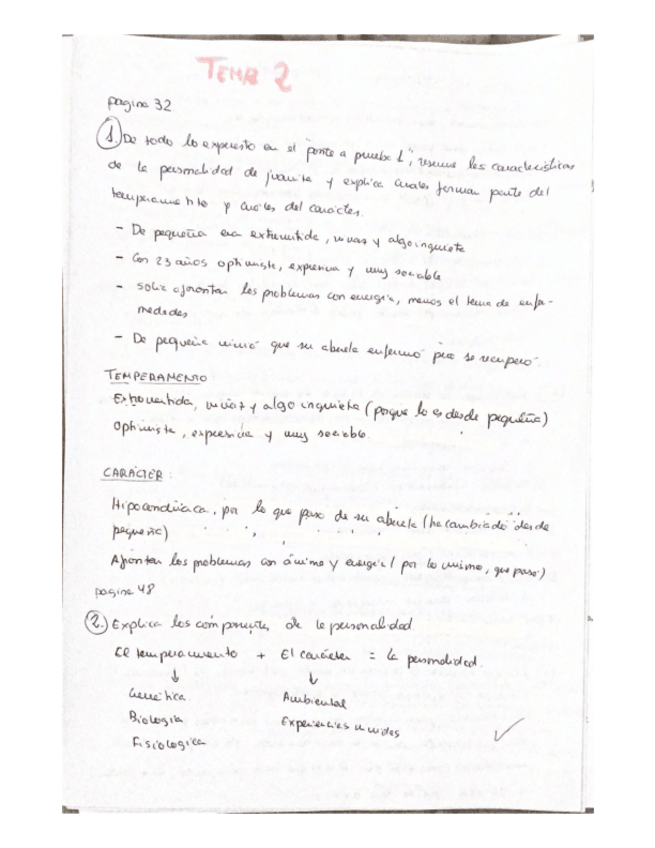 TEMA 2
pagina 32
1. De todo lo expuesto en el "ponte a prueba 1", resume las características
de la personalidad de Juanita y explica cuales forman parte del
temperamento y cuales del carácter.
- De pequeña era extrovertida, vivaz y algo inquieta
- Con 23 años optimista, expresiva y muy sociable
- solía afrontar los problemas con energía, menos el tema de enfe-
medades
- De pequeña vivió que su abuela enfermó pero se recuperó.
TEMPERAMENTO
Extrovertida, vivaz y algo inquieta (porque lo es desde pequeña)
Optimista, expresiva y muy sociable.
CARÁCTER:
Hipocondríaca, por lo que paso de su abuela (ha cambiado desde
pequeña)
Afrontar los problemas con ánimo y energía (por lo mismo, que paso)
pagina 48
2. Explica los componentes de la personalidad.
El temperamento + El carácter = la personalidad.
↓ ↓
Genética Ambiental
Biologia Experiencias vividas
Fisiologica